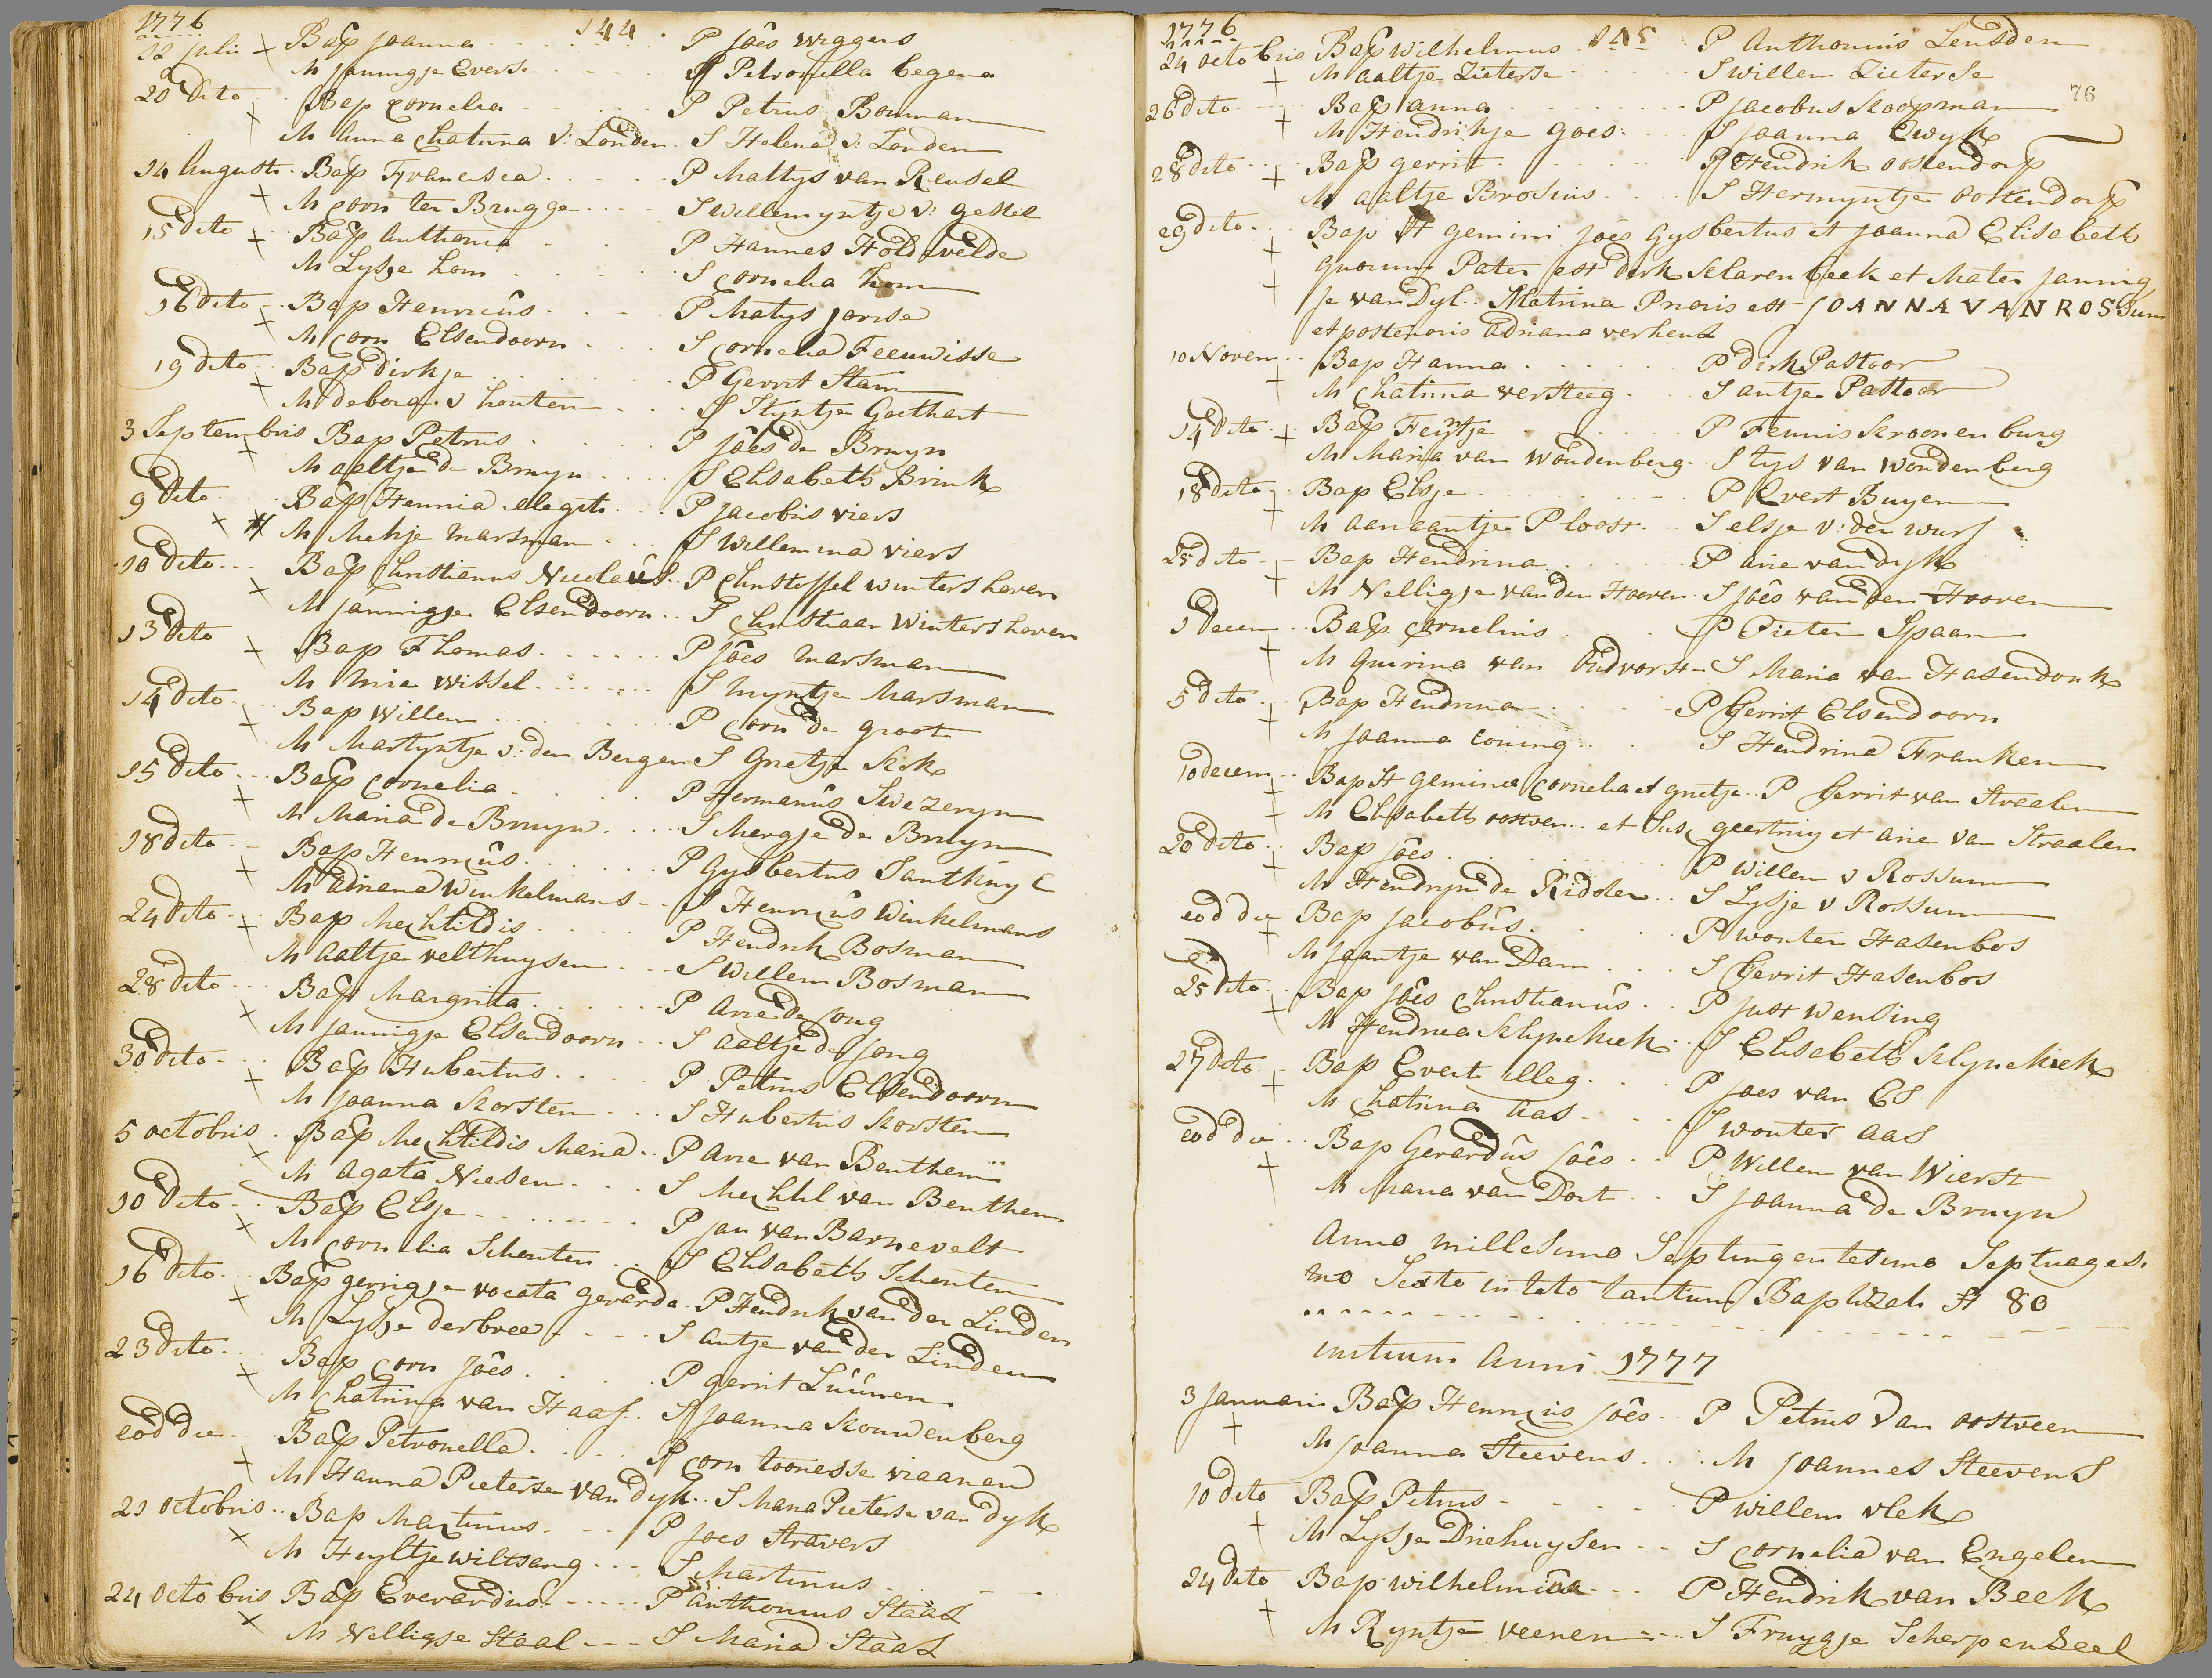 1776
144
12 julii + Bap joanna P Jôes wiggers
M jannigje Everse S Petronella begena
20 dito Bap Cornelia P Petrus Bouman
M Anna Chatrina v: Londen S Helena v: Londen
14 Augusti Bap Francisca P Mattys van Reusel
M Corn ter Brugge S Willemyntje v: gestel
15 dito Bap Anthonia P Hannes Hold velde
M Lysje hom S Cornelia hom
16 dito Bap Henricûs P Matys jorise
M Corn Elsendoorn S Cornelia Teeuwisse
19 dito Bap dirkje P Gerrit Stam
M debora v houten S Styntje Goethart
3 Septembris Bap Petrus P jôes de Bruyn
M aeltje de Bruyn S Elisabeth Brink
9 dito Bap Hennia illegit. P jacobus viers
M Mekje Marsman S Willemina viers
10 dito Bap Christianus Nicolaûs P Christoffel wintershoven
M jannigje Elsendoorn S Christiaan Wintershoven
13 dito Bap Thomas P Jôes Marsman
M Mie wissel S Myntje Marsman
14 dito Bap Willem P Corn de groot
M Martyntje v: den Bergen S Grietje Kok
15 dito Bap Cornelia P Hermanûs Swezeryn
M Maria de Bruyn S Mergje de Bruyn
18 dito Bap Henricûs P Gysbertus Santhuyl
M Adriana Winkelmans S Henricûs Winkelmans
24 dito Bap Mechtildis P Hendrik Bosman
M Aaltje velthuysen S Willem Bosman
28 dito Bap Margrita P Arie de jong
M jannigje Elsendoorn S Aaltje de jong
30 dito Bap Hubertus P Petrus Elsendoorn
M joanna Korsten S Hubertus Korsten
5 octobris Bap Mechtildis Maria P Arie van Benthem
M Agata Niesen S Mechtil van Benthem
10 dito Bap Elsje P jan van Barnevelt
M Cornelia Schouten S Elisabeth Schouten
16 dito Bap gerrigje vocata gerarda P Hendrik van der Linden
M Lysje derbree S Antje van der Linden
23 dito Bap Corn Jôes P gerrit Lúúnen
M Chatrina van Haaf S Joanna Kouwenberg
eod die Bap Petronella P Corn toonesse viaanen
M Hanna Pieterse van dyk S Maria Pieterse van dyk
21 octobris Bap Martinus P joes Stravers
M Huyltje wiltsang S Martinus
24 octobris Bap Everardus P Anthonius Staal
M Nelligje Staal S Maria Staal
1776
145
76
24 octobris Bap Wilhelmus P Anthonius Leusden
M aaltje Zieterse S willem Zieterse
26 dito Bap anna P jacobus Koopman
M Hendrikje goes S joanna Ewyk
28 dito Bap gerrit P Hendrik oostendorp
M aaltje Brosius S Hermyntje oostendorp
29 dito Bap St gemini Jôes Gysbertus et joanna Elisabeth
quorum Pater est dirk Klarenbeek et Mater jannig
je van Dyl. Matrina Prioris est JOANNA VAN ROSSum
et posterioris Adriana verheul
10 Novem Bap Hanna P dirk Pastoor
M Chatrina versteeg S antje Pastoor
14 dito Bap Feytje P Teunis Kroonenburg
M Maria van Woudenberg S tys van Woudenberg
18 dito Bap Elsje P Evert Buyen
M aanaantje Ploost S elsje v: der wurf
25 dito Bap Hendrina P arie van dyk
M Nelligje van den Hooven S jôes van den Hooven
1 decem Bap Cornelius P Pieter Spaan
M Quirina van Oudvorst S Maria van Hasendonk
5 dito Bap Hendrina P Gerrit Elsendoorn
M joanna Coning S Hendrina Franken
10 decem Bap St Geminae Cornelia et grietje P Gerrit van Straalen
M Elisabeth oostveen et Sus geertruy et arie van Straalen
20 dito Bap jôes P Willem v Rossum
M Hendryn de Ridder S Lysje v Rossum
eod die Bap jacobûs P Wouter Hasenbos
M jaantje van Dam S Gerrit Hasenbos
25 dito Bap jôes Christianûs P Just wensing
M Hendrica Klynekiek S Elisabeth Klynekiek
27 dito Bap Evert illeg. P joes van Es
M Chatrina aas S wouter aas
eod die Bap Gerardûs jôes P Willem van Wierst
M Maria van Dort S joanna de Bruyn
Anno millesimo Septingentesimo Septuages.
mo Sexto in toto tantum Baptizati St 80
initium Anni 1777
3 januarii Bap Henricus jôes P Petrus van oostveen
M joanna Steevens M joannes Steevens
10 dito Bap Petrus P willem vlek
M Lysje Driehuysen S Cornelia van Engelen
24 dito Bap wilhelmina P Hendrik van Beek
M Ryntje veenen S Fruygje Scherpenzeel